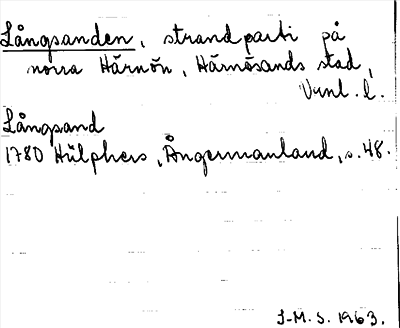 Långsanden, strandparti på
norra Härnön, Härnösands stad,
Vrnl. l.
Långsand
1780 Hülphers, Ångermanland, s. 48.
J-M. S. 1963.